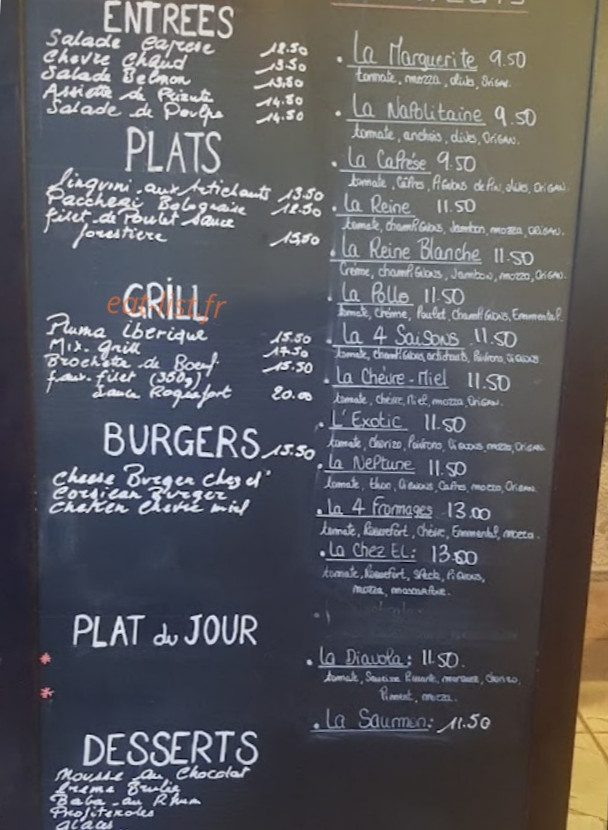 ENTREES
Salade Caprese 12.50
Chevre Chaud 13.50
Salade Belmon 13.50
Assiette de 14.50
Salade de Poulpe 14.50
PLATS
linguini aux Artichauts 13.50
Paccheri Bolognaise 12.50
filet de Poulet sauce
forestiere 15,50
GRiLL
eat-list.fr
Pluma iberique 15.50
Mix. grill 17.50
Brochette de Boeuf 15.50
faux-filet (350g)
Sauce Roquefort 20.00
BURGERS 15.50
Cheese Burger Chez el'
Corsican Burger
Chicken Chevre miel
PLAT du JOUR
*
*
DESSERTS
Mousse au Chocolat
Creme Brulée
Baba au Rhum
Profiteroles
glaces
. La Marguerite 9.50
tomate, mozza, olives, Origan.
. La Napolitaine 9.50
tomate, anchois, olives, Origan.
. La Caprése 9.50
tomate, Câpres, Pignons de Pin, olives, Origan.
. La Reine 11.50
tomate, champignons, Jambon, mozza, origan.
. La Reine Blanche 11.50
Crème, champignons, Jambon, mozza, Origan.
. La Pollo 11.50
tomate, Crème, Poulet, Champignons, Emmental.
. La 4 Saisons 11.50
tomate, champignons, artichauts, Poivrons, oignons.
. La Chèvre-Miel 11.50
tomate, chèvre, Miel, mozza, Origan.
. L'Exotic 11.50
tomate, chorizo, Poivrons, Oignons, mozza, Origan.
. La Neptune 11.50
tomate, thon, Oignons, Capres, mozza, Origan.
. La 4 Fromages 13.00
tomate, Roquefort, Chèvre, Emmental, mozza.
. La Chez EL: 13.50
tomate, Roquefort, Speck, Pignons,
mozza, mascarpone.
. La Diavola: 11.50.
tomate, Saucisse Piquante, merguez, Chorizo,
Piment, mozza.
. La Saumon: 11.50